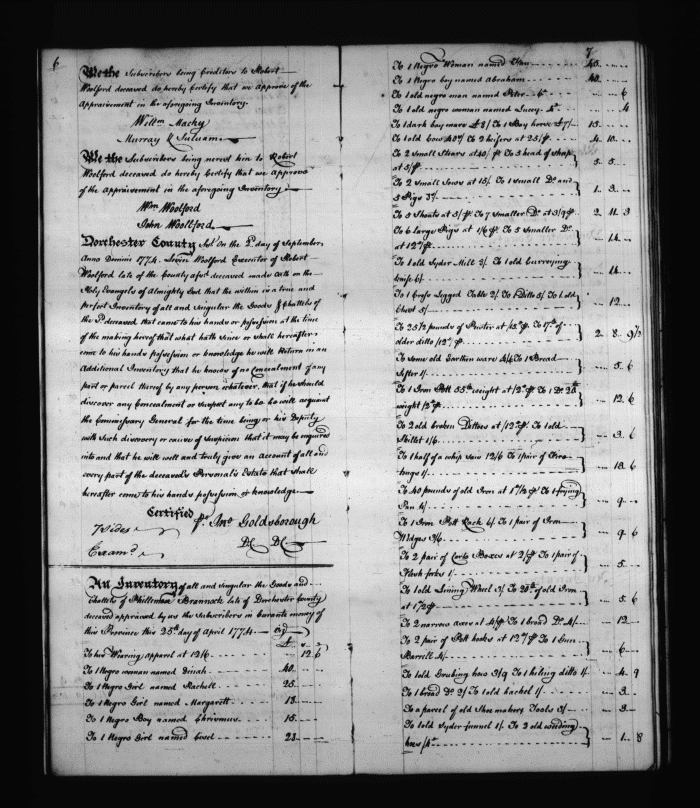 6
We the Subscribers being Creditors to Robert
Woolford deceased do hereby Certify that we Approve of the
Appraisement in the aforegoing Inventory.
Willm Machy
Murray &
We the Subscribers being nered kin to Robert
Woolford deceased do hereby Certify that we Approve
of the Appraisement in the aforegoing Inventory
Wm Woolford
John Woolford
Dorchester County Sct On the 2d day of September
Anno Domini 1774. Woolford Executor of Robert
Woolford late of the County afsd deceased made oath on the
Holy Evangels of Almighty God that the within is a true and
perfect Inventory of all and singular the Goods & Chattels of
the sd deceased that came to his hands or possession at the time
of the making hereof that what hath since or shall hereafter
come to his hands possession or knowledge he will Return in an
Additional Inventory that he knows of no concealment of any
part or parcel thereof by any person whatever, that if he should
discover any Concealment or suspect any to be he will acquaint
the Commissary General for the time being or his Deputy
with such discovery or cause of suspicion that it may be enquired
into and that he will well and truly give an account of all and
every part of the deceased's Personal Estate that shall
hereafter come to his hands possession or knowledge
Certified
7 sides Pr Jno Goldsborough
Examd
An Inventory of all and singular the Goods and
chattels of Phillemon Brannock late of Dorchester County
deceased appraised by us the Subscribers in Currante money of
this Province this 25th day of April 1774
To his Wearing apparel at 12/6 12 6
To 1 Negro woman named Dinah 40
To 1 Negro Girl named Rachell 25
To 1 Negro Girl named Margarett 18
To 1 Negro Boy named Chrismus 15
To 1 Negro Girl named 23
7
To 1 Negro Woman named 40
To 1 Negro boy named Abraham 40
To 1 old negro man named Peter 6d 6
To 1 old negro woman named Sucey 4d 4
To 1 dark bay mare £8/ To 1 Bay horse £7/ 15
To 1 old Cow 40/ To 2 heifers at 25/ 4 10
To 2 small Stears at 40/ To 5 head of Sheep
at 5/ 5 5
To 2 small Sows at 15/ To 1 small Do and
5 Pigs 3/ 1 3
To 5 Shoats at 5/ To 7 Smaller Do at 3/9 2 11 3
To 6 large Pigs at 1/6 To 5 smaller Do
at 12d 14
To 1 old Syder Mill 2/ To 1 old Currying
knife 6/ 14
To 1 Cross Legged Table 2/ To 1 Ditto 5/ To 1 old
Chest 5/ 12
To 25 1/2 pounds of Pewter at To 17lb of
older ditto /12d 2 8 9 1/2
To some old Earthen ware 4/6 To 1 Bread
Sifter 1/ 5 6
To 1 Iron Pott 55lb weight at To 1 Do 20lb
weight 12 6
To 2 old broken Ditties at To 1 old
Skillet 1/6 3 6
To 1 half of a whip Saw 12/6 To 1 pair of Fire
tongs 1/ 18 6
To 40 pounds of old Iron at To 1 frying
Pan 4/ 9
To 1 Iron Pott Rack 6/ To 1 pair of Iron
Wedges 3/6 9 6
To 2 pair of Boxes at 2/ To 1 pair of
Flesh forks 1/ 5
To 1 old Lining Wheel 3/ To 20lb of old Iron
at 5 6
To 2 narrow axes at 4/ To 1 broad Do 4/ 12
To 2 pair of Pott hooks at To 1 Gun
Barrell 4/ 6
To 1 old Grubing hoe 3/9 To 1 ditto 1/ 4 9
To 1 broad Do 2/ To 1 old hackel 1/ 3
To a parcel of old Shoe makers Tools 3/ 3
To 1 old Syder funnel 1/ To 2 old weeding
hoes 1 8